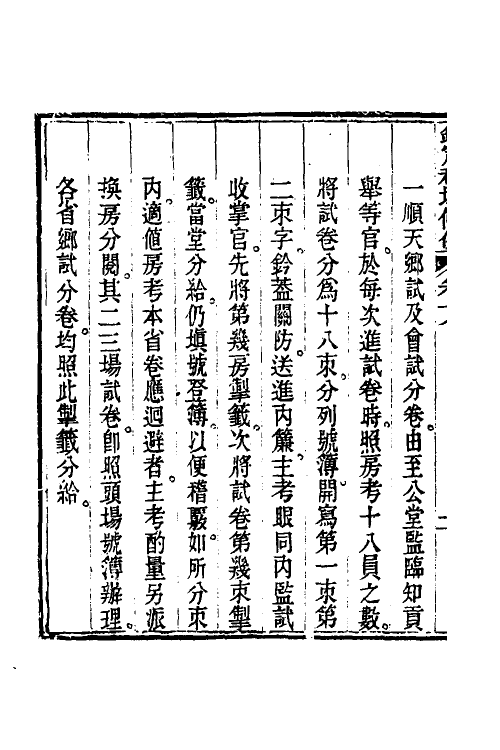 一順天鄉試及會試分卷由至公堂監臨知貢
舉等官於每次進試卷時照房考十八員之數。
將試卷分為十八束。分列號簿開寫第一束第
二束字。鈐葢關防。送進內簾。主考眼同內監試
收掌官先將第幾房掣籤次將試卷第幾束掣
籤當堂分給。仍塡號登簿。以便稽覈。如所分束
內適値房考本省卷應迴避者。主考酌量另派
換房分閱其二三場試卷卽照頭場號簿辦理。
各省鄉試分卷均照此掣籤分給。